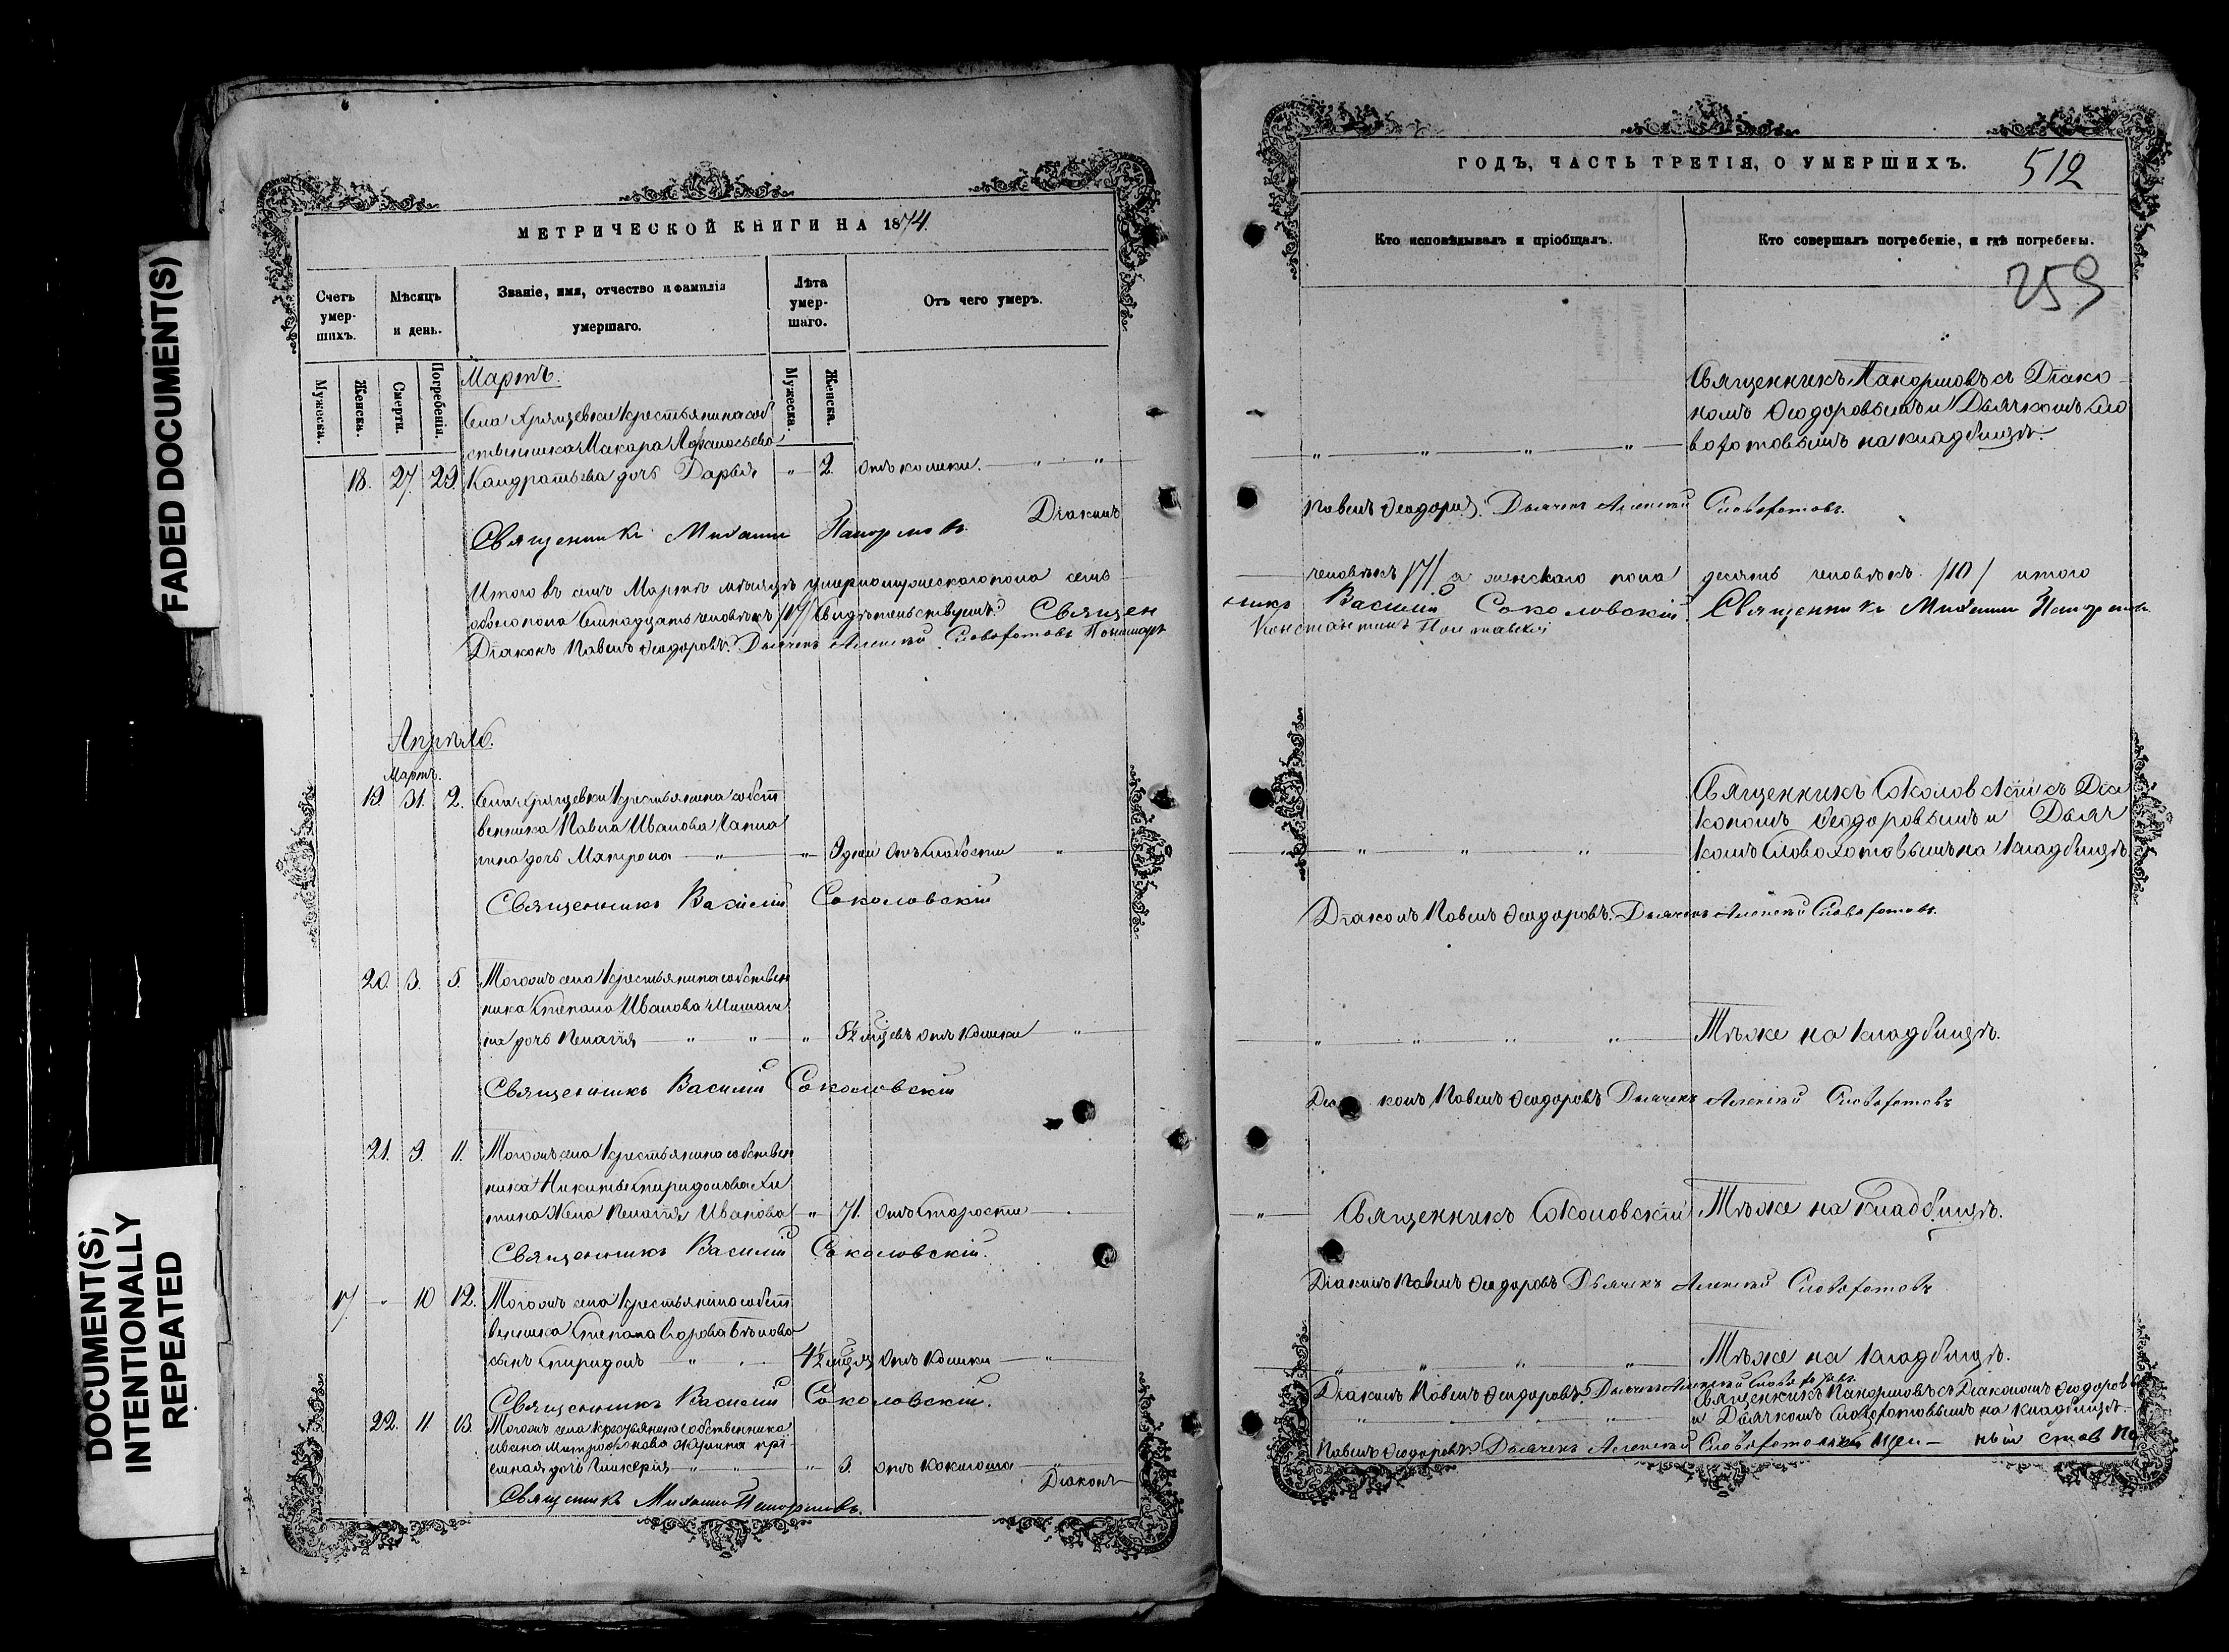 FADED DOCUMENT(S)
DOCUMENT(S)
INTENTIONALLY
REPEATED
МЕТРИЧЕСКОЙ КНИГИ НА 1874.
Счетъ умер-шихъ.
Мѣсяцъ и день.
Званіе, имя, отчество и фамилія
умершаго.
Лѣта умер-шаго.
Отъ чего умеръ.
Мужеска.
Женска.
Смерти.
Погребенія.
Мужеска.
Женска.
Мартъ.
Села Хрящевки Крестьянина соб
ственника Макара Афанасьева
18. 27. 29. Кандратьева дочь Дарья " 2. отъ кашки. " "
Діаконъ
Священникъ Михаилъ Панормовъ
Итого въ семъ Мартѣ мѣсяцѣ умерло мужескаго пола семь
обоего пола семнадцать человѣкъ /17/ Свидѣтельствуемъ: Священ
Діаконъ Павелъ Ѳеодоровъ. Дьячекъ Алексѣй Словохотовъ Пономарь
Апрѣль.
Мартъ.
19. 31. 2. Села Хрящевки Крестьянина собст
венника Павла Иванова
дочь Матрона " " 9 дней отъ слабости "
Священникъ Василій Соколовскій
20. 3. 5. Тогожъ села Крестьянина собствен
ника Степана Иванова
на дочь Пелагія " " " 5½ мѣсяцевъ отъ кашки "
Священникъ Василій Соколовскій
21. 9. 11. Тогожъ села Крестьянина собствен
ника Никиты Спиридонова
жена Пелагія Иванова " 71. отъ старости
Священникъ Василій Соколовскій.
17. " 10 12. Тогожъ села Крестьянина собст
венника Степана Егорова Бѣлова
сынъ Спиридонъ " 4½ мѣсяца отъ кашки "
Священникъ Василій Соколовскій.
22. 11 13. Тогожъ села Крестьянина собственника
Ивана Митрофанова прі
емная дочь Гликерія " " 3. отъ коклюша "
Діаконъ
Священникъ Михаилъ Панормовъ.
ГОДЪ, ЧАСТЬ ТРЕТІЯ, О УМЕРШИХЪ.
512
Кто исповѣдывалъ и пріобщалъ.
Кто совершалъ погребеніе, и гдѣ погребены.
259
Священникъ Панормовъ съ Діако
номъ Ѳеодоровымъ и Дьячкомъ Сло
" " " " вохотовымъ на кладбищѣ.
Павелъ Ѳеодоровъ. Дьячекъ Алексѣй Словохотовъ.
человѣкъ /7/ а женскаго пола десять человѣкъ /10/ итого
никъ Василій Соколовскій. Священникъ Михаилъ Панормовъ
Константинъ Полтавскій
Священникъ Соколовскій съ Діа
кономъ Ѳеодоровымъ и Дьяч
" " " " комъ Словохотовымъ на кладбищѣ
Діаконъ Павелъ Ѳеодоровъ. Дьячекъ Алексѣй Словохотовъ.
" " " " Тѣже на кладбищѣ.
Діаконъ Павелъ Ѳеодоровъ Дьячекъ Алексѣй Словохотовъ
" Священникъ Соколовскій Тѣже на кладбищѣ.
Діаконъ Павелъ Ѳеодоровъ Дьячекъ Алексѣй Словохотовъ
" " " " Тѣже на кладбищѣ.
Діаконъ Павелъ Ѳеодоровъ. Дьячекъ Алексѣй Словохотовъ.
Священникъ Панормовъ съ Діакономъ Ѳеодоровы
" " " и Дьячкомъ Словохотовымъ на кладбищѣ.
Павелъ Ѳеодоровъ Дьячекъ Алексѣй Словохотовъ